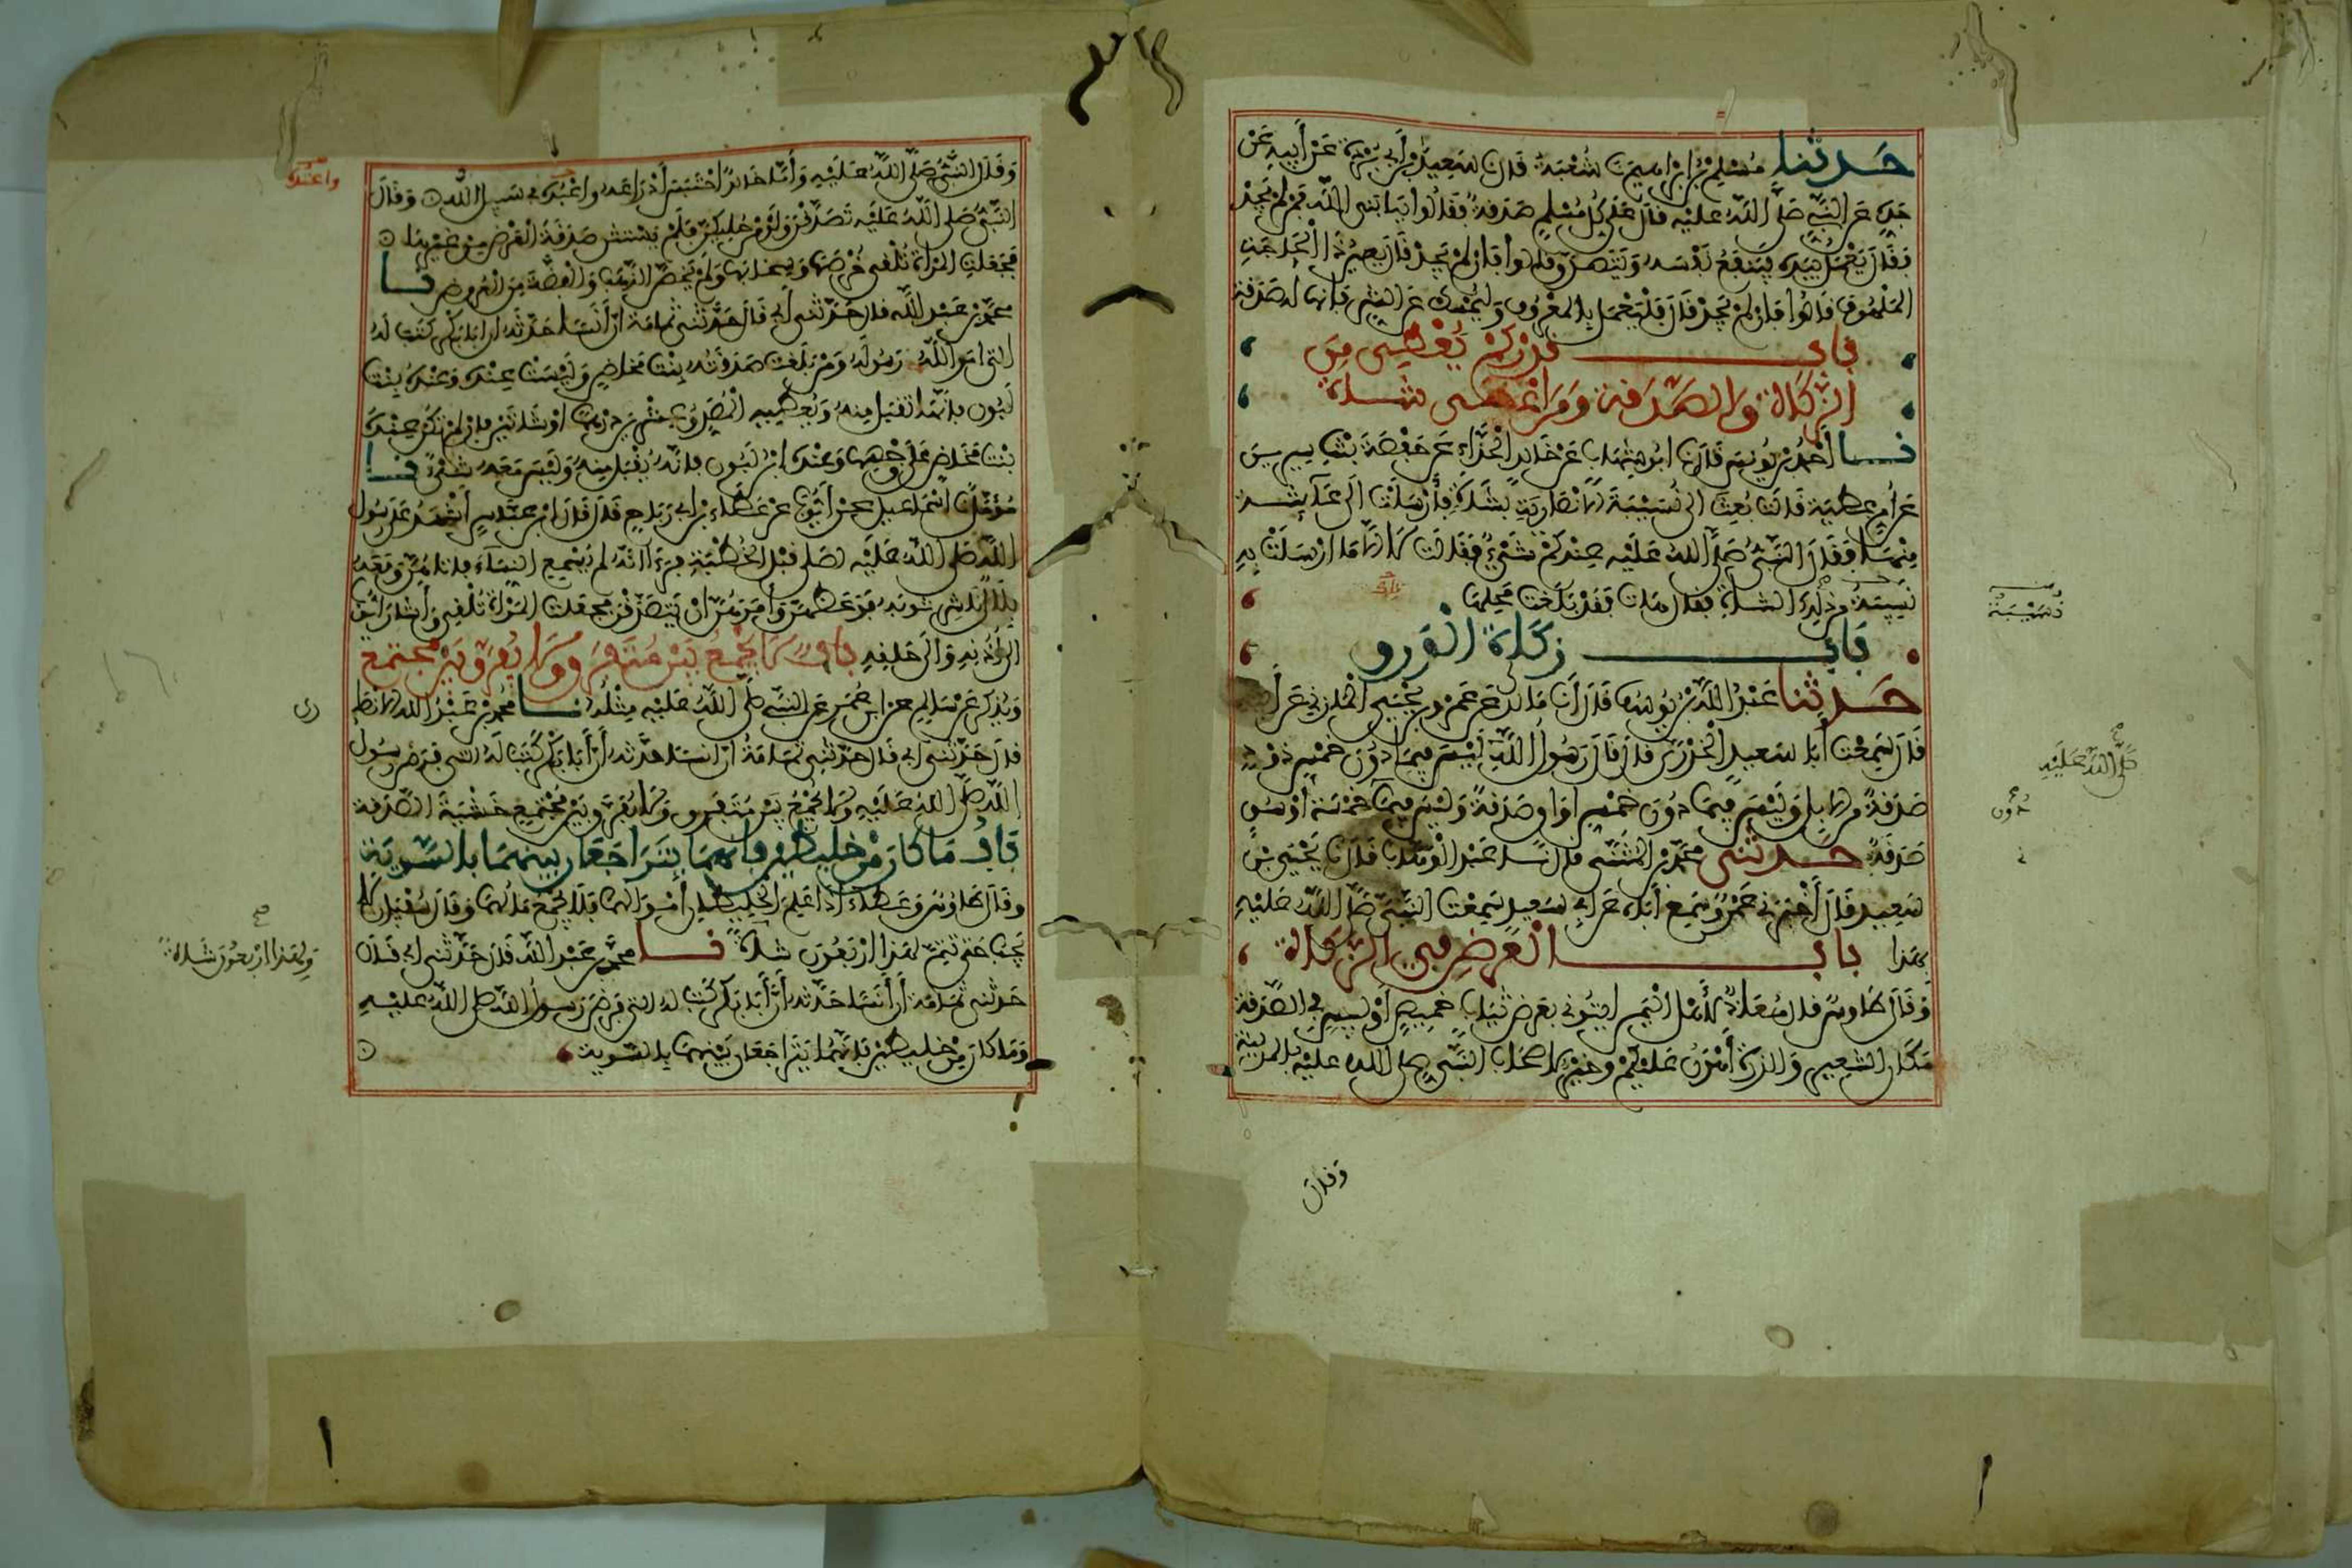 حدثنا مسلم بن ابراهيم نا شعبة قال نا سعيد بن أبي بردة عن أبيه عن
جده عن النبي صلى الله عليه قال على كل مسلم صدقة فقالوا يا نبي الله فمن لم يجد
فقال يعمل بيده فينفع نفسه ويتصدق قالوا فإن لم يجد قال يعين ذا الحاجة
الملهوف قالوا فإن لم يجد قال فليعمل بالمعروف وليمسك عن الشر فإنها له صدقة
باب قدر كم يعطى من
الزكاة والصدقة ومن أعطى شاة
نا أحمد بن يونس قال نا ابو شهاب عن خالد الحذاء عن حفصة بنت سيرين
عن أم عطية قالت بعث الى نسيبة الانصارية بشاة فأرسلت الى عائشة
منها فقال النبي صلى الله عليه عندكم شيء فقالت لا الا ما ارسلت به
نسيبة من ذلك الشاة فقال هات فقد بلغت محلها
باب زكاة الورق
حدثنا عبد الله بن يوسف قال أنا مالك عن عمرو بن يحيى المازني عن أبيه
قال سمعت أبا سعيد الخدري قال قال رسول الله ليس فيما دون خمس ذود
صدقة من الابل وليس فيما دون خمس اواق صدقة وليس فيما خمسة أوسق
صدقة حدثني محمد بن المثنى قال نا عبد الوهاب قال نا يحيى بن
سعيد قال أخبرني عمرو سمع أباه عن ابي سعيد سمعت النبي صلى الله عليه
بهذا باب العرض في الزكاة
وقال طاوس قال معاذ لأهل اليمن ايتوني بعرض ثياب خميص أو لبيس في الصدقة
مكان الشعير والذرة أهون عليكم وخير لاصحاب النبي صلى الله عليه بالمدينة
نسيبة
صلى الله عليه
دون
وقال
وقال النبي صلى الله عليه وأما خالد احتبس أدراعه وأعبده في سبيل الله وقال
النبي صلى الله عليه تصدقن ولو من حليكن فلم يستثن صدقة الفرض من غيرها
فجعلت المرأة تلقي خرصها وسخابها ولم يخص الذهب والفضة من العروض نا
محمد بن عبد الله قال حدثني أبي قال حدثني ثمامة أن أنسا حدثه أن أبا بكر كتب له
التي امر الله رسوله ومن بلغت صدقته بنت مخاض وليست عنده وعنده بنت
لبون فإنها تقبل منه ويعطيه المصدق عشرين درهما أو شاتين فإن لم تكن عنده
بنت مخاض على وجهها وعنده ابن لبون فإنه يقبل منه وليس معه شيء نا
مؤمل نا اسماعيل عن أيوب عن عطاء بن أبي رباح قال قال ابن عباس أشهد على رسول
الله صلى الله عليه لصلى قبل الخطبة فرءا انه لم يسمع النساء فأتاهن ومعه
بلال ناشر ثوبه فوعظهن وأمرهن أن يتصدقن فجعلت المرأة تلقي وأشار أيوب
الى أذنه والى حلقه باب لا يجمع بين متفرق ولا يفرق بين مجتمع
ويذكر عن سالم عن ابن عمر عن النبي صلى الله عليه مثله نا محمد بن عبد الله الانصا
قال حدثني أبي قال حدثني ثمامة أن أنسا حدثه أن أبا بكر كتب له التي فرض رسول
الله صلى الله عليه ولا يجمع بين متفرق ولا يفرق بين مجتمع خشية الصدقة
باب ما كان من خليطين فإنهما يتراجعان بينهما بالسوية
وقال طاوس وعطاء اذا علم الخليطان أموالهما فلا يجمع مالهما وقال سفين لا
يجب حتى تتم لهذا أربعون شاة نا محمد بن عبد الله قال حدثني أبي قال
حدثني ثمامة أن أنسا حدثه أن أبا بكر كتب له التي فرض رسول الله صلى الله عليه
وما كان من خليطين فإنهما يتراجعان بينهما بالسوية
وأعتده
رى
صح
ولهذا أربعون شاة